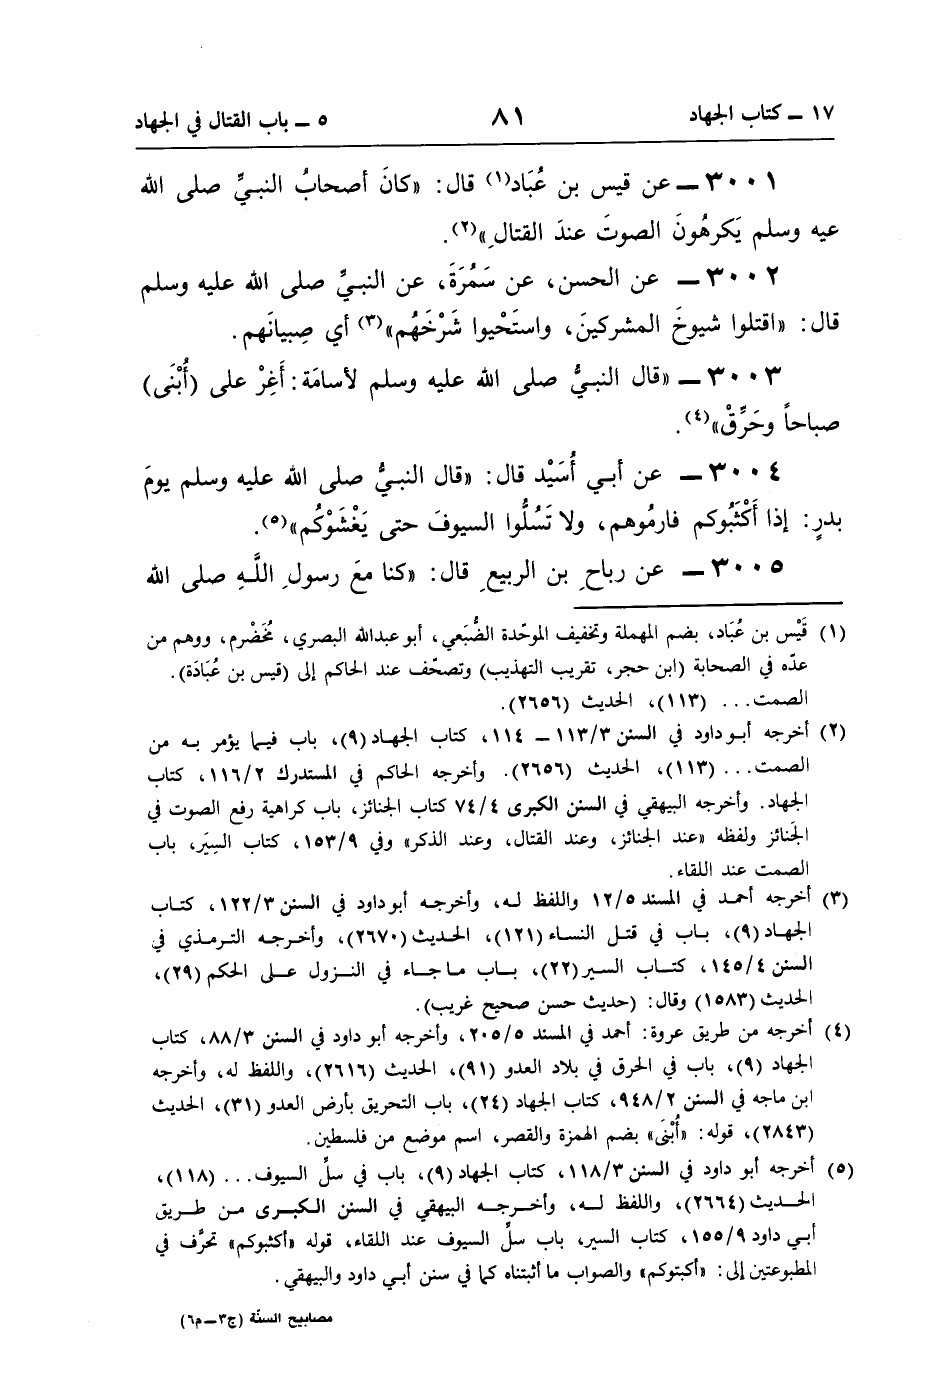 ١٧ ـ كتاب الجهاد ٨١ ٥ ـ باب القتال في الجهاد
٣٠٠١ ـ عن قيس بن عُبَاد(١) قال: «كانَ أصحابُ النبيِّ صلى الله
عيه وسلم يَكرهُونَ الصوتَ عندَ القتالِ»(٢).
٣٠٠٢ ـ عن الحسن، عن سَمُرَةَ، عن النبيِّ صلى الله عليه وسلم
قال: «اقتلوا شيوخَ المشركينَ، واستَحْيوا شَرْخَهُم»(٣) أي صِبيانَهم.
٣٠٠٣ ـ «قال النبيُّ صلى الله عليه وسلم لأسامَة: أَغِرْ على (أُبْنَى)
صباحاً وحَرِّقْ»(٤).
٣٠٠٤ ـ عن أبي أُسَيْد قال: «قال النبيُّ صلى الله عليه وسلم يومَ
بدرٍ: إذا أَكْثَبُوكم فارمُوهم، ولا تَسُلُّوا السيوفَ حتى يَغْشَوْكُم»(٥).
٣٠٠٥ ـ عن رباحِ بن الربيعِ قال: «كنا معَ رسولِ اللَّهِ صلى الله
(١) قَيْس بن عُبَاد، بضم المهملة وتخفيف الموحّدة الضُّبَعي، أبو عبدالله البصري، مُخَضْرم، ووهم من
عدّه في الصحابة (ابن حجر، تقريب التهذيب) وتصحّف عند الحاكم إلى (قيس بن عُبَادَة).
الصمت... (١١٣)، الحديث (٢٦٥٦).
(٢) أخرجه أبو داود في السنن ١١٣/٣ ـ ١١٤، كتاب الجهاد (٩)، باب فيما يؤمر به من
الصمت... (١١٣)، الحديث (٢٦٥٦). وأخرجه الحاكم في المستدرك ١١٦/٢، كتاب
الجهاد. وأخرجه البيهقي في السنن الكبرى ٧٤/٤ كتاب الجنائز، باب كراهية رفع الصوت في
الجَنائز ولفظه «عند الجنائز، وعند القتال، وعند الذكر» وفي ١٥٣/٩، كتاب السِيَر، باب
الصمت عند اللقاء.
(٣) أخرجه أحمد في المسند ١٢/٥ واللفظ له، وأخرجه أبو داود في السنن ١٢٢/٣، كتاب
الجهاد (٩)، باب في قتل النساء (١٢١)، الحديث (٢٦٧٠)، وأخرجه الترمذي في
السنن ١٤٥/٤، كتاب السير (٢٢)، باب ما جاء في النزول على الحكم (٢٩)،
الحديث (١٥٨٣) وقال: (حديث حسن صحيح غريب).
(٤) أخرجه من طريق عروة: أحمد في المسند ٢٠٥/٥، وأخرجه أبو داود في السنن ٨٨/٣، كتاب
الجهاد (٩)، باب في الحرق في بلاد العدو (٩١)، الحديث (٢٦١٦)، واللفظ له، وأخرجه
ابن ماجه في السنن ٩٤٨/٢، كتاب الجهاد (٢٤)، باب التحريق بأرض العدو (٣١)، الحديث
(٢٨٤٣)، قوله: «أُبْنَى» بضم الهمزة والقصر، اسم موضع من فلسطين.
(٥) أخرجه أبو داود في السنن ١١٨/٣، كتاب الجهاد (٩)، باب في سلِّ السيوف... (١١٨)،
الحديث (٢٦٦٤)، واللفظ له، وأخرجه البيهقي في السنن الكبرى من طريق
أبي داود ١٥٥/٩، كتاب السير، باب سلِّ السيوف عند اللقاء، قوله «أكثبوكم» تحرَّف في
المطبوعتين إلى: «أكبتوكم» والصواب ما أثبتناه كما في سنن أبي داود والبيهقي.
مصابيح السنّة (ج٣ ـ م٦)